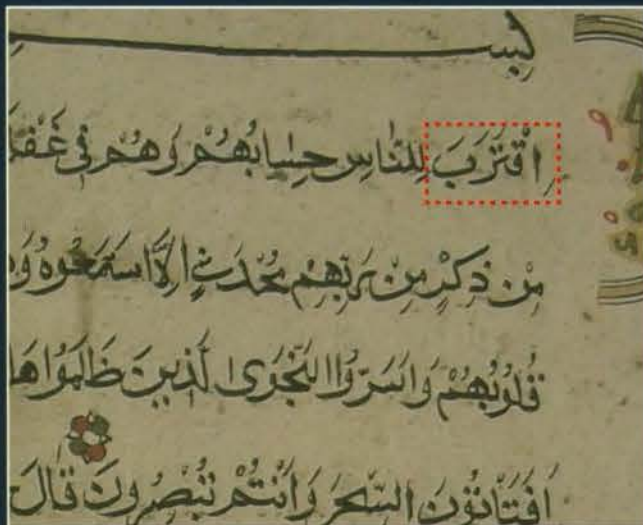 بســـــــم
اقْتَرَبَ لِلنَّاسِ حِسَابُهُمْ وَهُمْ فِى غَفْلَ
مِنْ ذِكْرٍ مِنْ رَبِّهِمْ مُحْدَثٍ اِلَّا اسْتَمَعُوهُ وَ
قُلُوبُهُمْ وَاَسَرُّوا النَّجْوَى الَّذِينَ ظَلَمُوا هَ
اَفَتَأْتُونَ السِّحْرَ وَاَنْتُمْ تُبْصِرُونَ قَالَ